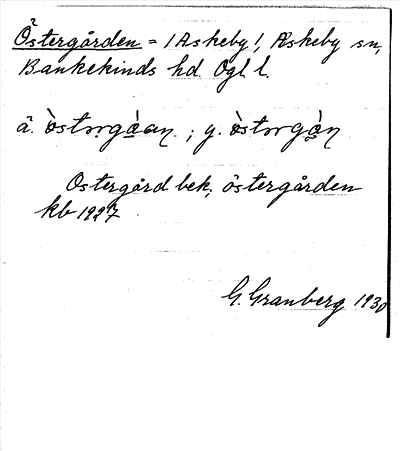 Östergården = / Askeby /, Askeby sn,
Bankekinds hd. Ögl l.
ä. ; y.
Östergård bek, östergården
kb 1927
G. Granberg 1930